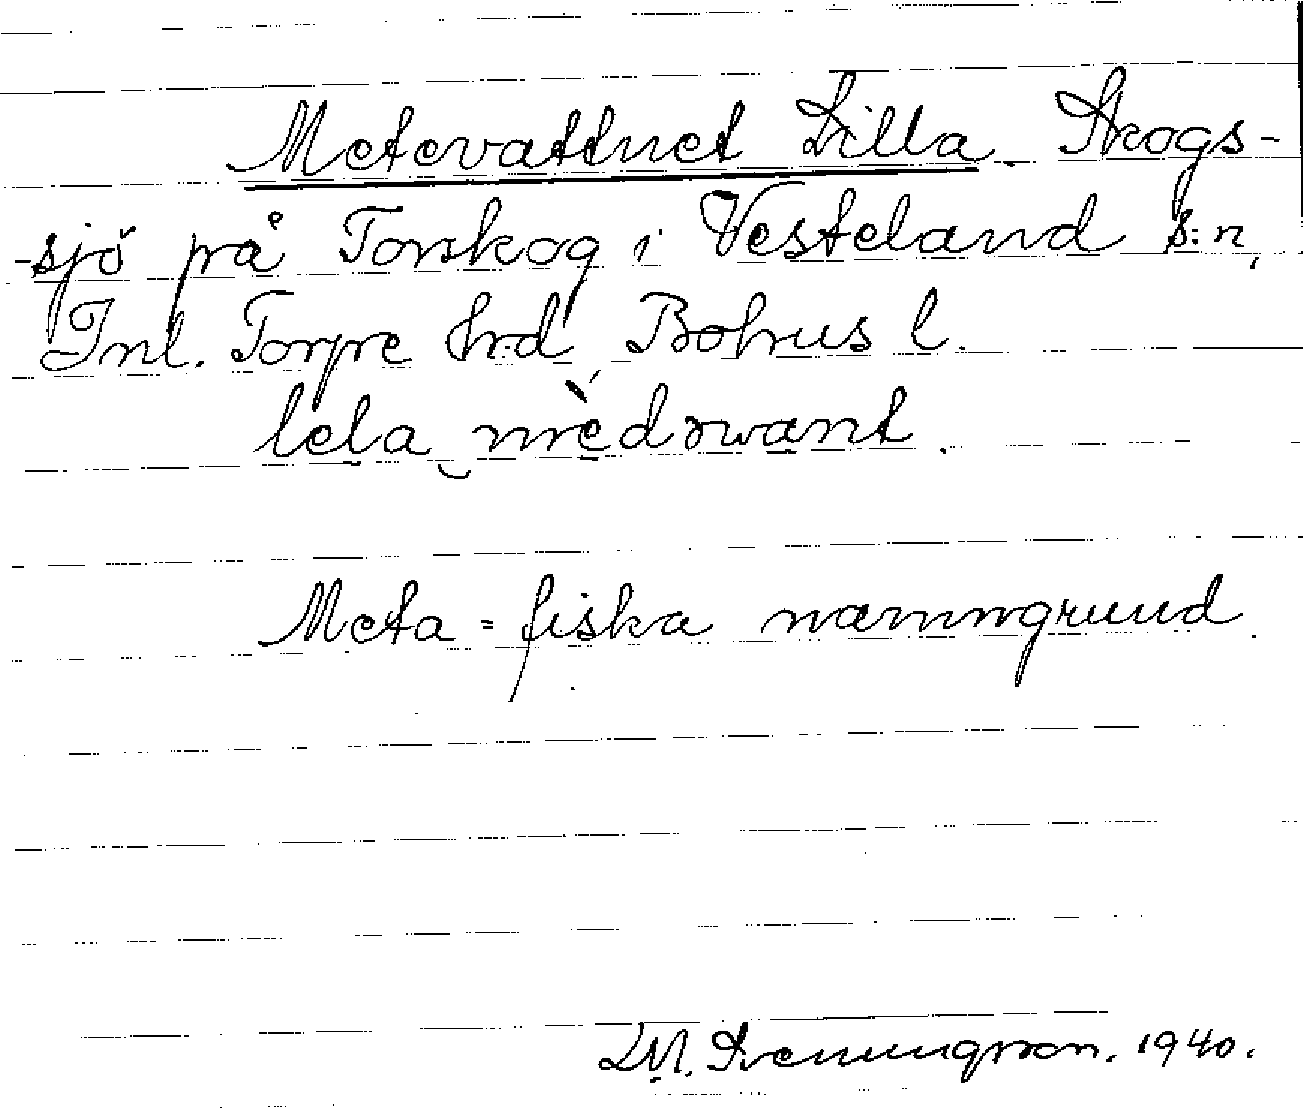 Metevattnet Lilla. Skogs-
-sjö på Torskog i Vesteland s:n,
Inl. Torpe hrd, Bohus l.
lela
Meta = fiska namngrund.
LM. Svenungsson. 1940.